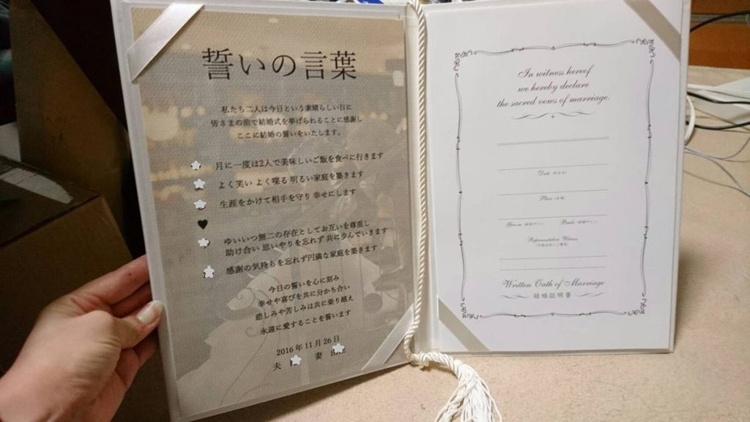 誓いの言葉
私たち二人は今日という素晴らしい日に
皆さまの前で結婚式を挙げられることに感謝し
ここに結婚の誓いをいたします。
月に一度は2人で美味しいご飯を食べに行きます
よく笑い よく喋る 明るい家庭を築きます
生涯をかけて相手を守り 幸せにします
ゆいいつ無二の存在としてお互いを尊重し
助け合い 思いやりを忘れず 共に歩んでいきます
感謝の気持ちを忘れず円満な家庭を築きます
今日の誓いを心に刻み
幸せや喜びを共に分かち合い
悲しみや苦しみは共に乗り越え
永遠に愛することを誓います
2016年11月26日
夫 妻
In witness hereof
we hereby declare
the sacred vows of marriage.
Date
Place
Groom Bride
Representative Witness
Written Oath of Marriage
結婚証明書